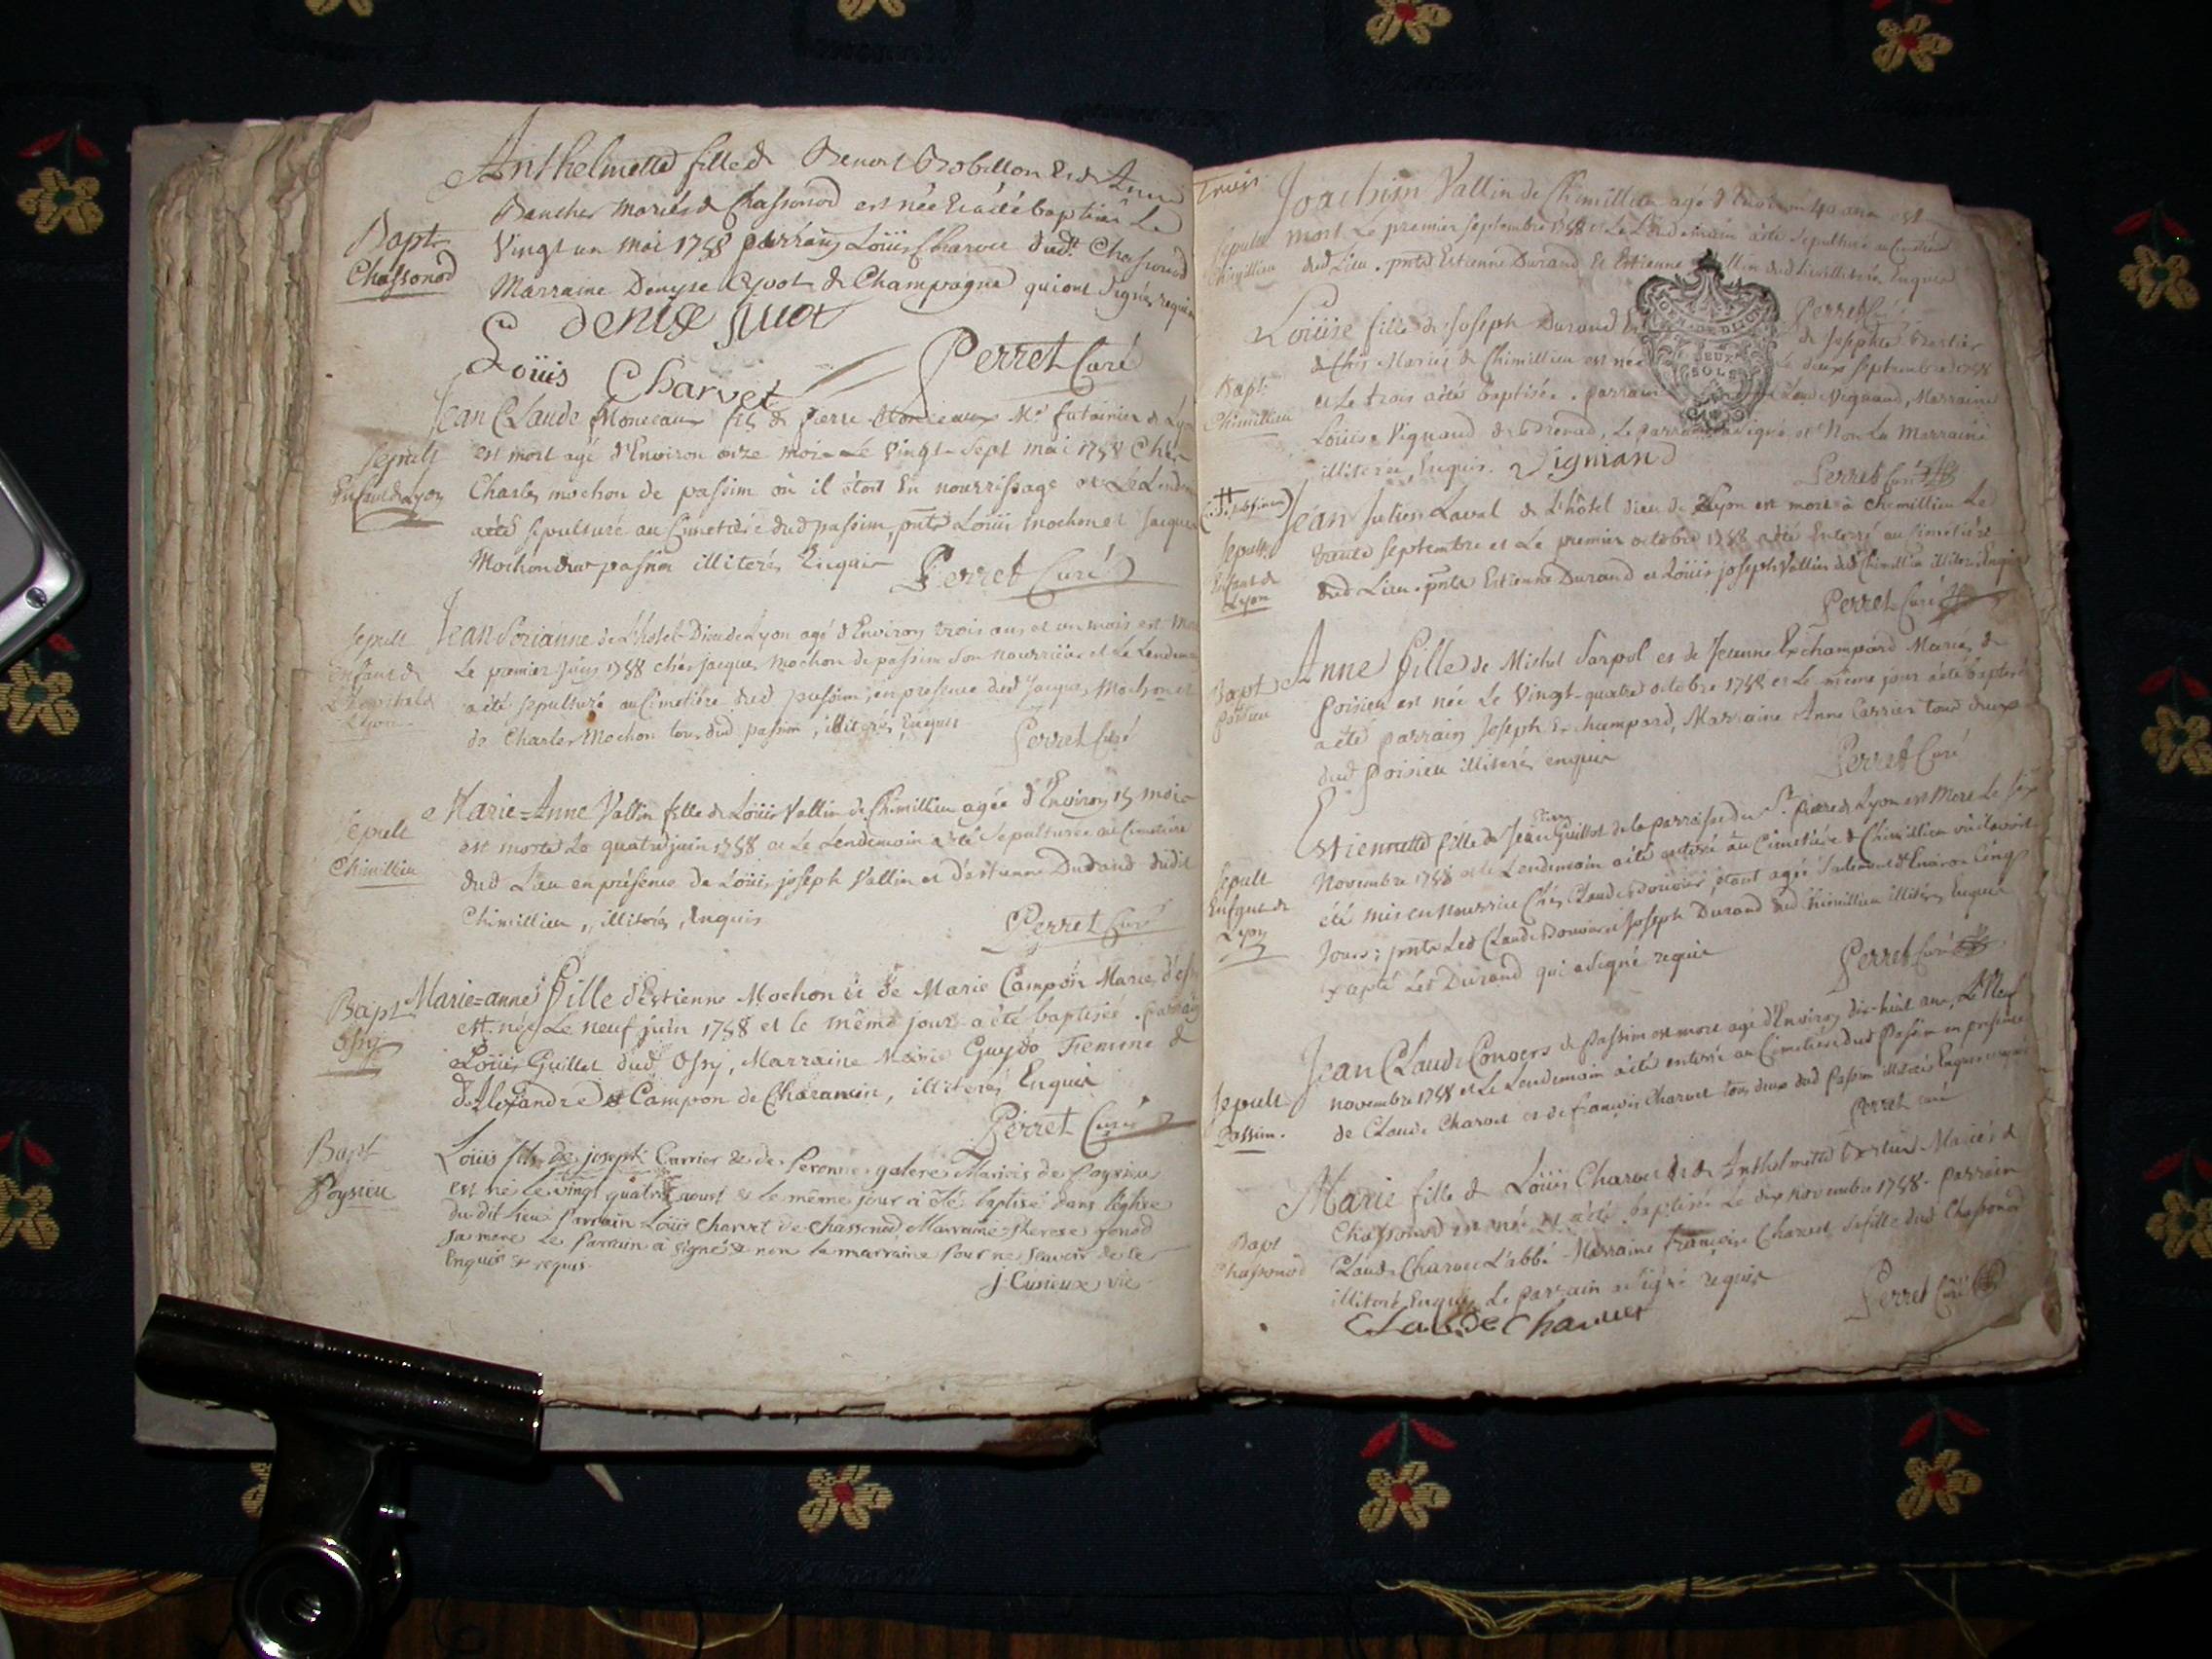 Anthelmette fille de Benoit Robillon et d'Anne
Baucher mariés de Chassonod est née et a été baptisée le
Bapt
Chassonod
Vingt un mai 1758 parrain Loüis Charvet dudt. Chassonod
Marraine Denyse Cyvot de Champagne qui ont signés requis
denise
Loüis Charvet
Perret Curé
Jean Claude Monceaux fils de pierre Monceaux Me. futainier de Lyon
Sepult
Enfant de Lyon
est mort agé d'Environ onze mois Le Vingt-Sept mai 1758 Chès
Charles mochon de passim où il étoit En nourrissage et Le Lendem
a été sepulturé au Cimetière dud passim, pnts Loüis mochon et Jacques
Mochon dud passim illiterés Enquis
Perret Curé
Sepult
enfant de
L'hopital de
Lyon
Jean de L'hotel-Dieu de Lyon agé d'Environ trois ans et un mois est mort
Le premier Juin 1758 chès jacques mochon de passim son nourricier et Le Lendem
a été sepulturé au Cimetière dud passim, en presence dud Jacques Mochon et
de Charles Mochon tous dud passim, illiterés, Enquis
Perret Curé
Sepult
Chimillieu
Marie=Anne Vallin fille de Loüis Vallin de Chimillieu agée d'Environ 15 mois
est morte Le quatre juin 1758 et Le Lendemain a été Sepulturée au Cimetière
dud Lieu en présence de Loüis joseph Vallin et d'éstienne Durand dudit
Chimillieu, illiterés, Enquis
Perret Curé
Bapt
Ossy
Marie=anne fille d'Estienne Mochon et de Marie Campon Mariés d'ossy
est née Le neuf juin 1758 et le même jour a été baptisée. parrain
Loüis Guillet dud Ossy, Marraine Marie Guydo Femme de
d'Alexandre Campon de Charancin, illiterés Enquis
Perret Curé
Bapt
Poysieu
Loüis fils de joseph Carrier & de Peronne galere Mariés de Poysieu
est né le vingt quatre aoust & le même jour a été baptisé dans l'église
du dit Lieu Parrain Loüis Charvet de Chassonod Marraine therese gonod
sa mere Le Parrain a signé & non la marraine Pour ne sçavoir de ce
enquis & requis
j. Cusieux vic
Trois
Joachim Vallin de Chimillieu agé d'Environ 40 ans est
Sepult
Chimillieu
mort Le premier septembre 1758 et Le Lendemain a été Sepulturé au Cimetière
dud Lieu. pnts Estienne Durand Et Estienne Vallin dud Lieu illiterés Enquis
Perret Curé
GEN. DE DIJON
DEUX
SOLS
Loüise fille de Joseph Durand de Josephte
Bapt
Chimillieu
Mariés de Chimillieu est née Le deux Septembre 1758
et Le trois a été baptisée. parrain Claude Vignand, Marraine
Loüise Vignand de Brenod, Le parrain a signé et Non La Marraine
illiterée, Enquis. Vignand
Perret Curé
Jean Julien Laval de L'hôtel dieu de Lyon est mort à Chemillieu Le
Sepult
Enfant de
Lyon
trente Septembre et Le premier octobre 1758 a été Enterré au Cimetière
dud Lieu. pnts Estienne Durand et Loüis joseph Vallin dud Chimillieu illiterés Enquis
Perret Curé
Bapt
poisieu
Anne fille de Michel Sarpol et de Jeanne Exchampard Mariés de
poisieu est née Le Vingt-quatre octobre 1758 et Le même jour a été baptisée
a été parrain Joseph Exchampard, Marraine Anne Carrier tous deux
dud poisieu illiterés enquis
Perret Curé
Estiennette fille de Jean Pierre Guillot de la parroisse de St. pierre de Lyon est Morte Le Six
Sepult
Enfant de
Lyon
Novembre 1758 et le Lendemain a été enterré au Cimetière de Chimillieu où il avoit
été mis en Nourrice Chès Claude étant agée Seulement d'Environ Cinq
Jours; pnts Led Claude et Joseph Durand dud Chimillieu illiterés Enquis
Excepté Led Durand qui a signé requis
Perret Curé
Sepult
Passim.
Jean Claude Convers de Passim est mort agé d'Environ dix-huit ans, Le Neuf
novembre 1758 et Le Lendemain a été enterré au Cimetière dud Passim en presence
de Claude Charvet et de françois Charvet tous deux dud Passim illiterés Enquis
Perret curé
Marie fille de Loüis Charvet et de Anthelmette Mariés de
Bapt
Chassonod
Chassonod est née et a été baptisée Le dix Novembre 1758. parrain
Claude Charvet L'abbé. Marraine françoise Charvet sa fille dud Chassonod
illiteré Enquis Le parrain a signé requis
Claude Charvet
Perret Curé